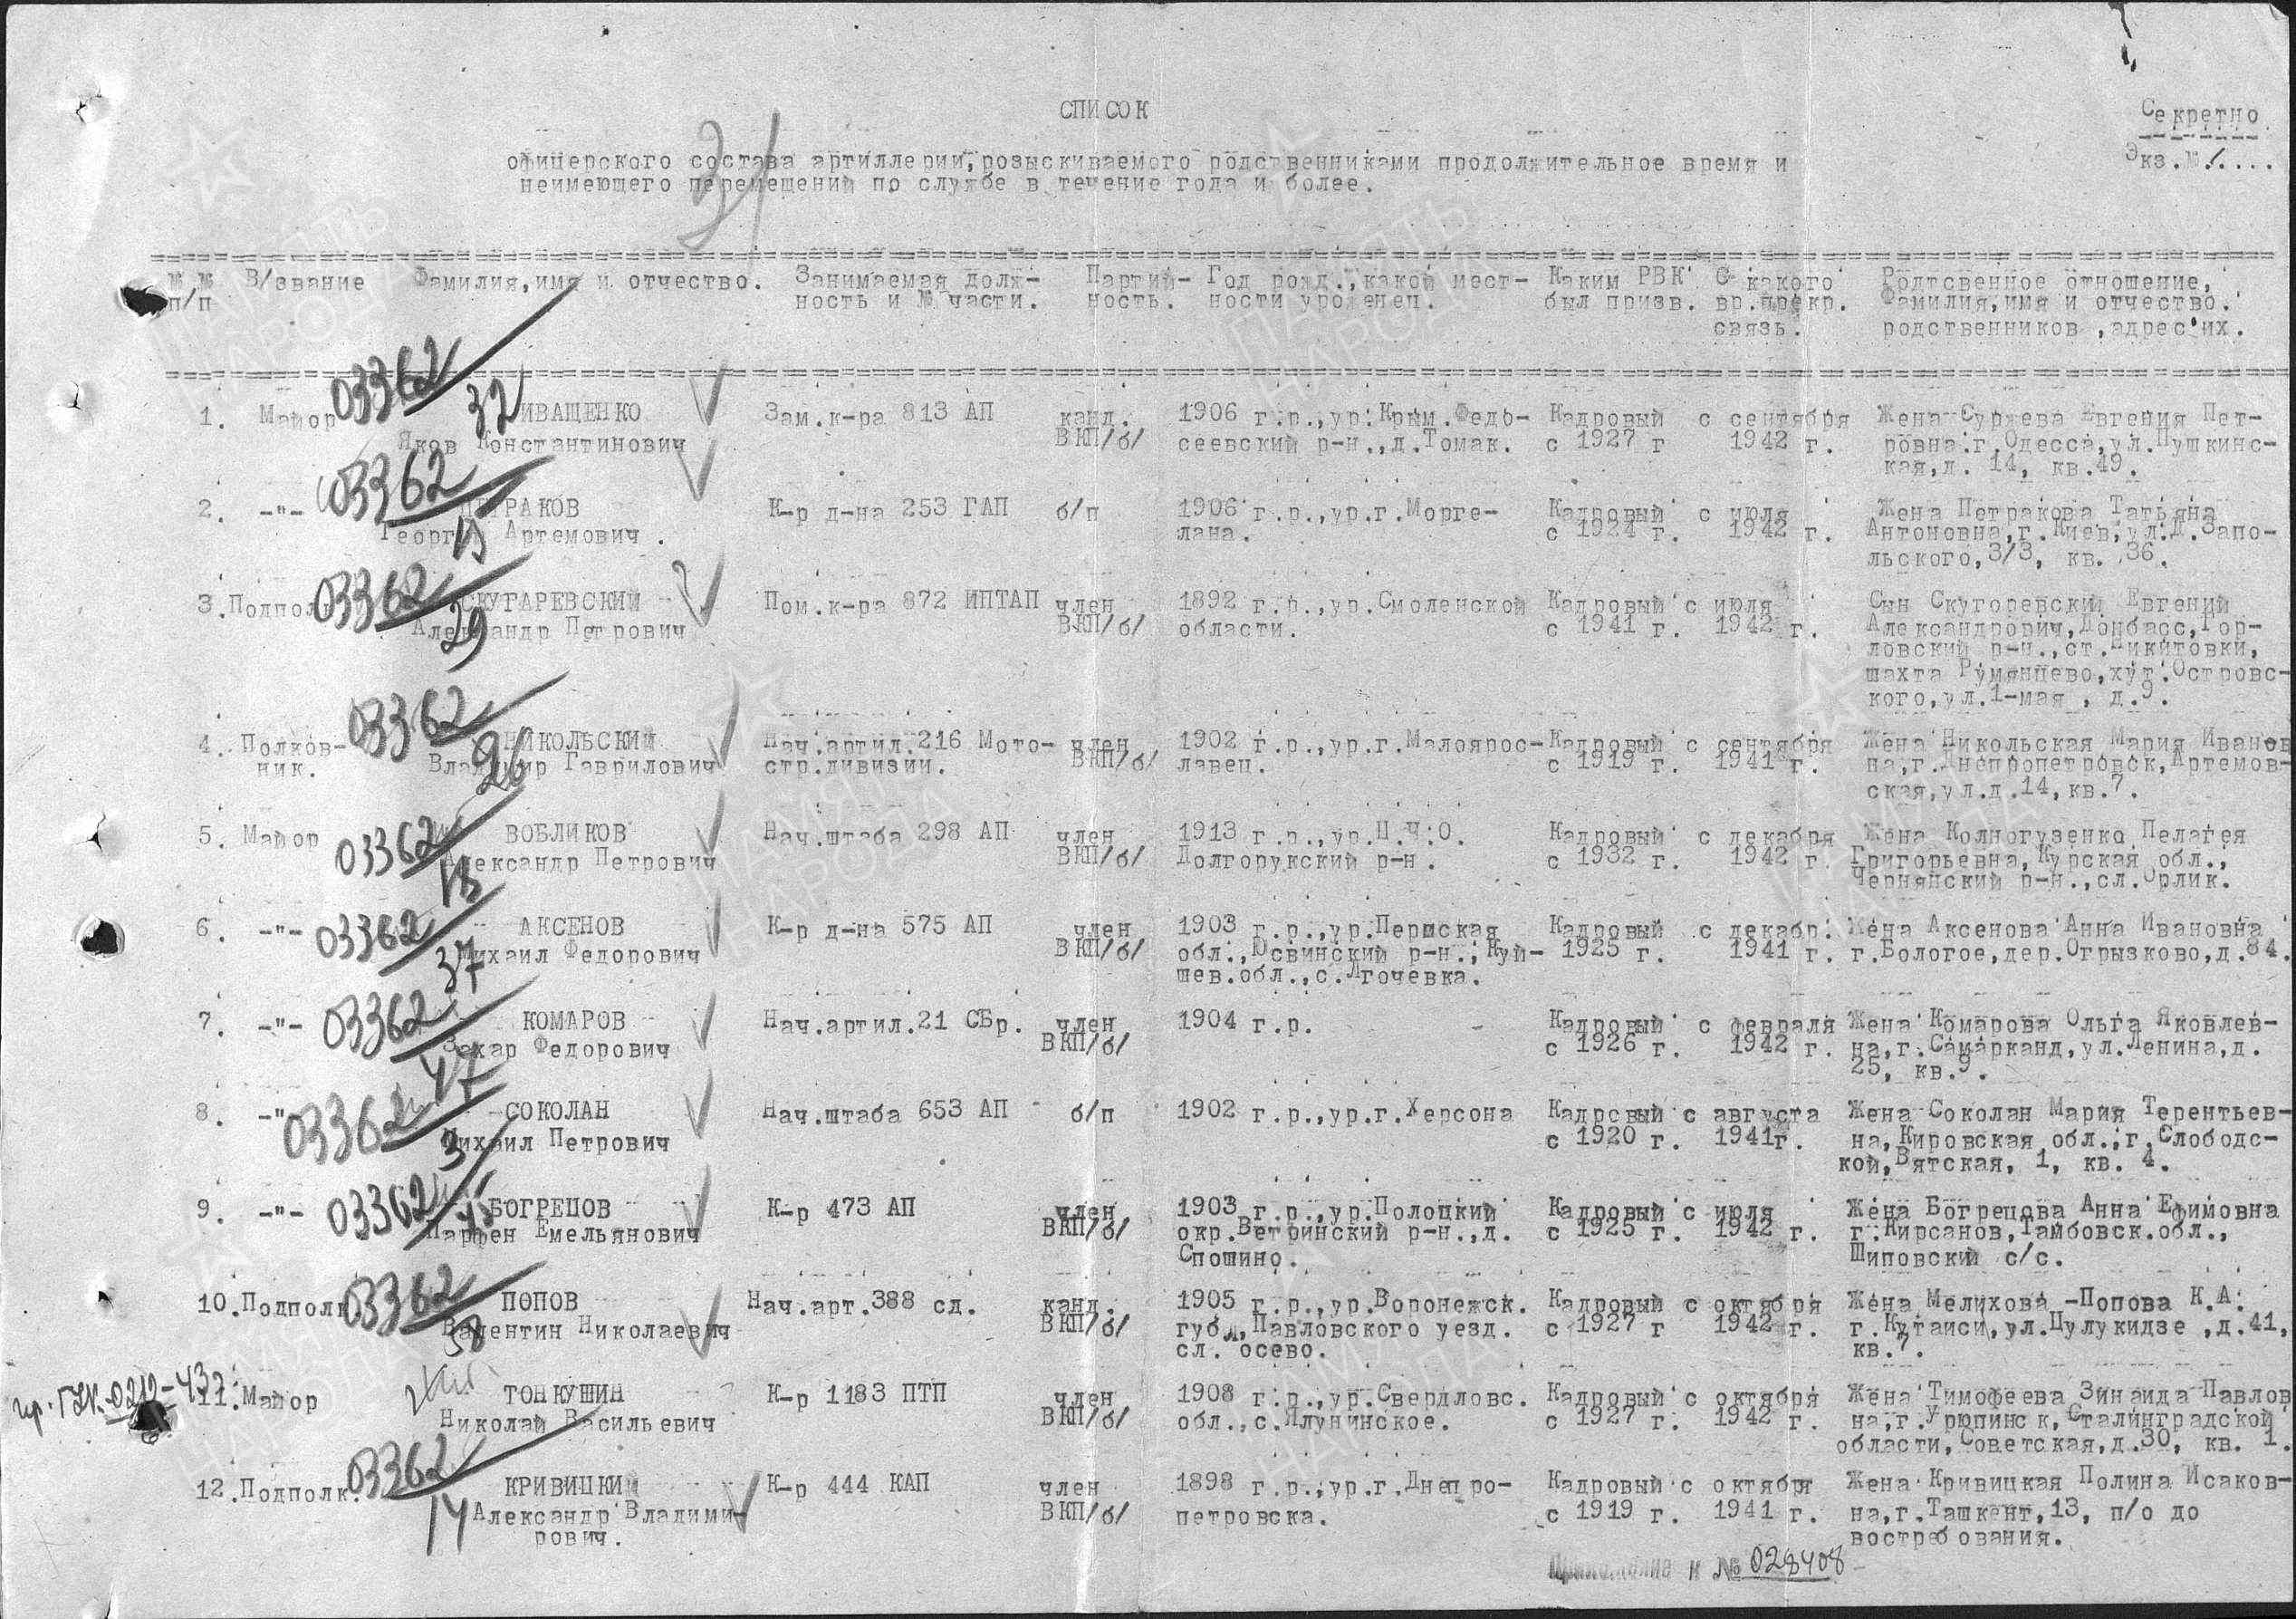 СПИСОК
Секретно
Экз.№ 1....
офицерского состава артиллерии, розыскиваемого родственниками продолжительное время и
неимеющего перемещений по службе в течение года и более.
31
№№ п/п В/звание Фамилия,имя и отчество. Занимаемая долж- Партий- Год рожд.,какой мест- Каким РВК С какого Родтсвенное отношение,
ность и № части. ность. ности уроженец. был призв. вр.прекр. Фамилия,имя и отчество.
связь. родственников ,адрес их.
03362
32
1. Майор ИВАЩЕНКО Зам.к-ра 813 АП канд. 1906 г.р.,ур.Крым.Федо- Кадровый с сентября Жена Суряева Евгения Пет-
Яков Константинович ВКП/б/ сеевский р-н.,д.Томак. с 1927 г 1942 г. ровна г.Одесса,ул.Пушкинс-
кая,д. 14, кв.49.
03362
2. -"- ПЕТРАКОВ К-р д-на 253 ГАП б/п 1906 г.р.,ур.г.Морге- Кадровый с июля Жена Петракова Татьяна
Георгий Артемович . лана. с 1924 г. 1942 г. Антоновна,г.Киев,ул.Д.Запо-
льского,3/3, кв. 36.
03362
29
3.Подпол. СКУГАРЕВСКИЙ Пом.к-ра 872 ИПТАП член 1892 г.р.,ур.Смоленской Кадровый с июля Сын Скугоревский Евгений
Александр Петрович ВКП/б/ области. с 1941 г. 1942 г. Александрович,Донбасс,Гор-
ловский р-н.,ст.Никитовки,
шахта Румянцево,хут.Островс-
кого,ул.1-мая , д.9.
03362
26
4. Полков- НИКОЛЬСКИЙ Нач.артил.216 Мото- член 1902 г.р.,ур.г.Малоярос- Кадровый с сентября Жена Никольская Мария Иванов
ник. Владимир Гаврилович стр.дивизии. ВКП/б/ лавец. с 1919 г. 1941 г. на,г.Днепропетровск,Артемов-
ская,ул.д.14,кв.7.
03362
18
5. Майор ВОБЛИКОВ Нач.штаба 298 АП член 1913 г.р.,ур.Ц.Ч.О. Кадровый с декабря Жена Колногузенко Пелагея
Александр Петрович ВКП/б/ Долгорукский р-н. с 1932 г. 1942 г. Григорьевна,Курская обл.,
Чернянский р-н.,сл.Орлик.
03362
37
6. -"- АКСЕНОВ К-р д-на 575 АП член 1903 г.р.,ур.Пермская Кадровый с декабр. Жена Аксенова Анна Ивановна
Михаил Федорович ВКП/б/ обл.,Юсвинский р-н.,Куй- 1925 г. 1941 г. г.Бологое,дер.Огрызково,д.84.
шев.обл.,с.Лгочевка.
03362
47
7. -"- КОМАРОВ Нач.артил.21 СБр. член 1904 г.р. - Кадровый с февраля Жена Комарова Ольга Яковлев-
Захар Федорович ВКП/б/ с 1926 г. 1942 г. на,г.Самарканд,ул.Ленина,д.
25, кв.9.
03362
3
8. -"- СОКОЛАН Нач.штаба 653 АП б/п 1902 г.р.,ур.г.Херсона Кадровый с августа Жена Соколан Мария Терентьев-
Михаил Петрович с 1920 г. 1941г. на,Кировская обл.,г.Слободс-
кой,Вятская, 1, кв. 4.
03362
9. -"- БОГРЕЦОВ К-р 473 АП член 1903 г.р.,ур.Полоцкий Кадровый с июля Жена Богрецова Анна Ефимовна
Парфен Емельянович ВКП/б/ окр.Ветринский р-н.,д. с 1925 г. 1942 г. г.Кирсанов,Тамбовск.обл.,
Спошино. Шиповский с/с.
03362
58
10.Подполк. ПОПОВ Нач.арт.388 сд. канд. 1905 г.р.,ур.Воронежск. Кадровый с октября Жена Мелихова -Попова К.А.
Валентин Николаевич ВКП/б/ губ.,Павловского уезд. с 1927 г 1942 г. г.Кутаиси,ул.Цулукидзе ,д.41,
сл. осево. кв.7.
пр.ГУК-0212-43
11.Майор ТОНКУШИН К-р 1183 ПТП член 1908 г.р.,ур.Свердловс. Кадровый с октября Жена Тимофеева Зинаида Павлов
Николай Васильевич ВКП/б/ обл.,с.Ялунинское. с 1927 г. 1942 г. на,г.Урюпинск,Сталинградской
области,Советская,д.30, кв. 1.
03362
14
12.Подполк. КРИВИЦКИЙ К-р 444 КАП член 1898 г.р.,ур.г.Днепро- Кадровый с октября Жена Кривицкая Полина Исаков-
Александр Владими- ВКП/б/ петровска. с 1919 г. 1941 г. на,г.Ташкент,13, п/о до
рович. востребования.
Приложение к № 028408